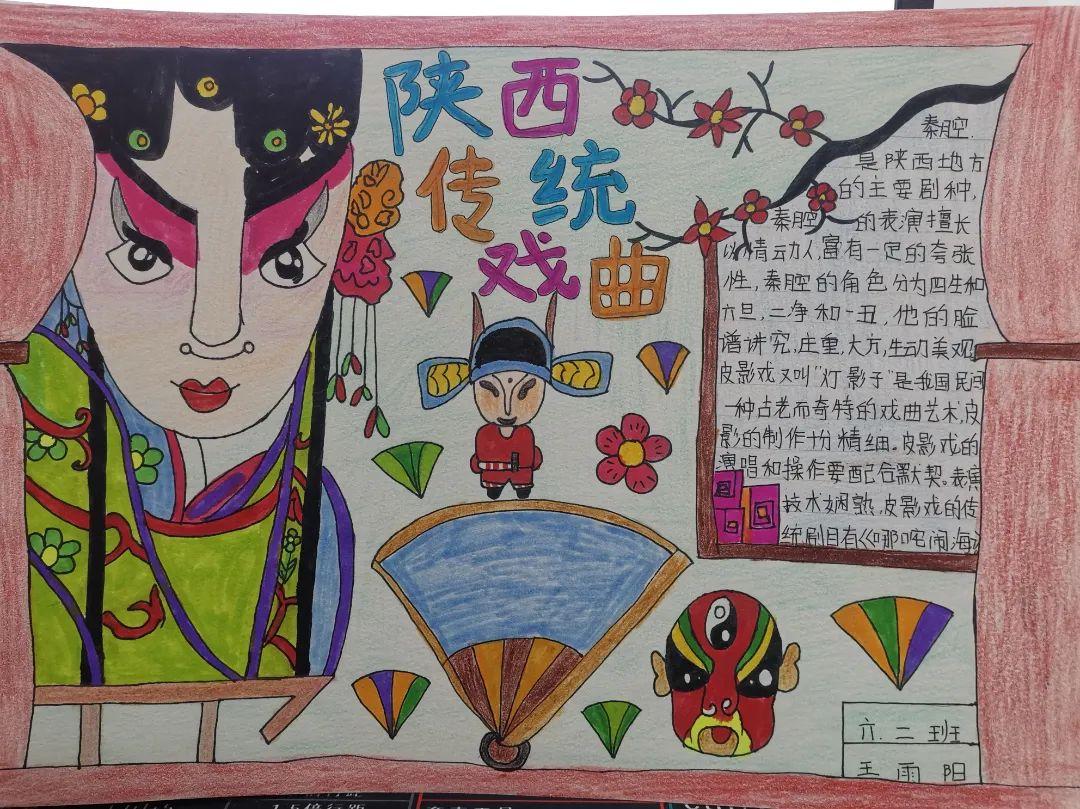 陕西
传统
戏曲
秦腔
是陕西地方
的主要剧种,
秦腔 的表演擅长
以情动人,富有一定的夸张
性,秦腔的角色分为四生和
六旦,二净和一丑,他的脸
谱讲究,庄重,大方,生动美观
皮影戏又叫"灯影子"是我国民间
一种古老而奇特的戏曲艺术,皮
影的制作十份精细。皮影戏的
演唱和操作要配合默契。表演
技术娴熟,皮影戏的传
统剧目有《哪吒闹海
六.二班
王雨阳